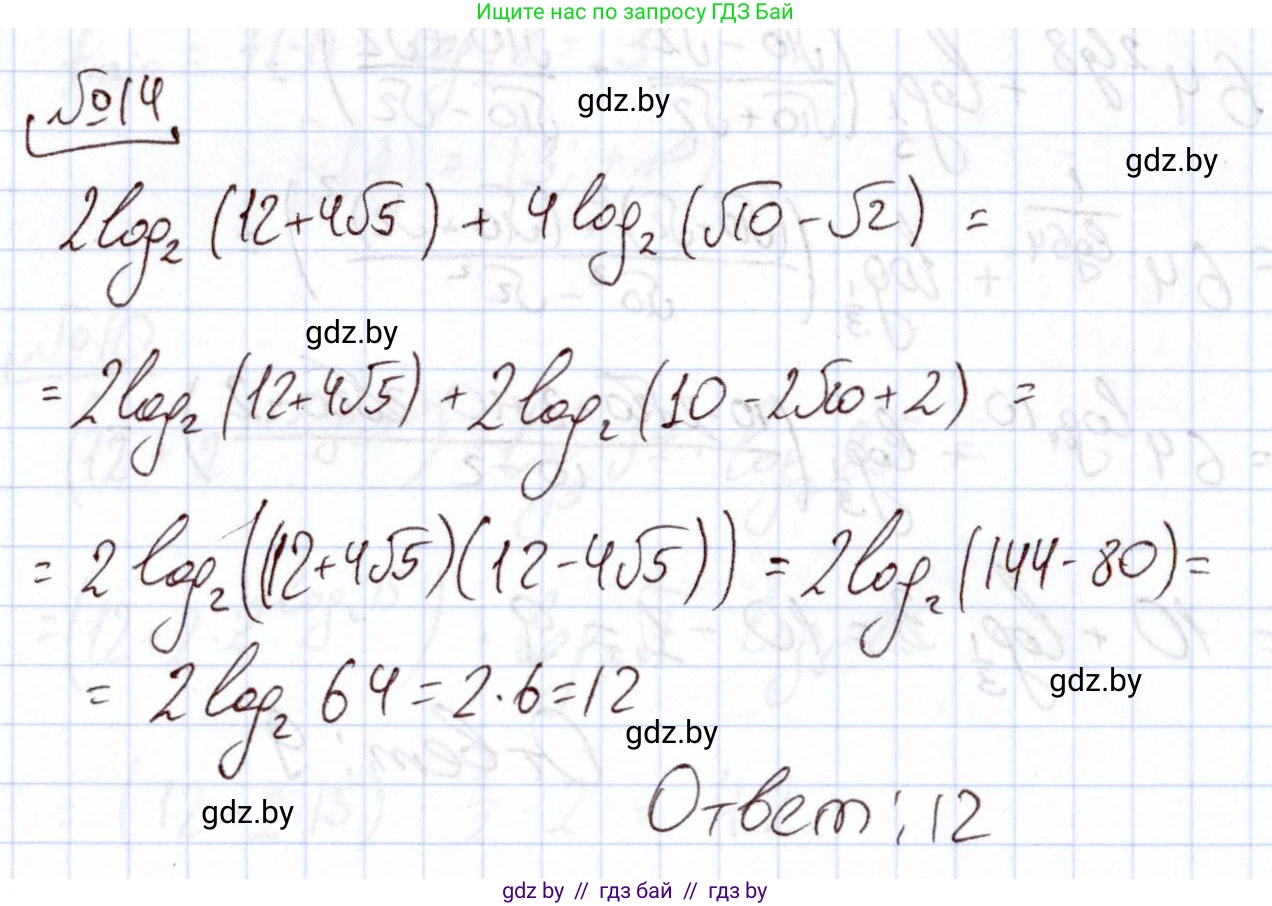 Ищите нас по запросу ГДЗ Бай
№14
gdz.by
gdz.by
2log₂(12+4√5) + 4log₂(√10-√2) =
gdz.by
= 2log₂(12+4√5) + 2log₂(10-2√20+2) =
= 2log₂((12+4√5)(12-4√5)) = 2log₂(144-80) =
= 2log₂ 64 = 2·6 = 12
gdz.by
gdz.by
gdz.by
Ответ: 12
gdz by // гдз бай // гдз by